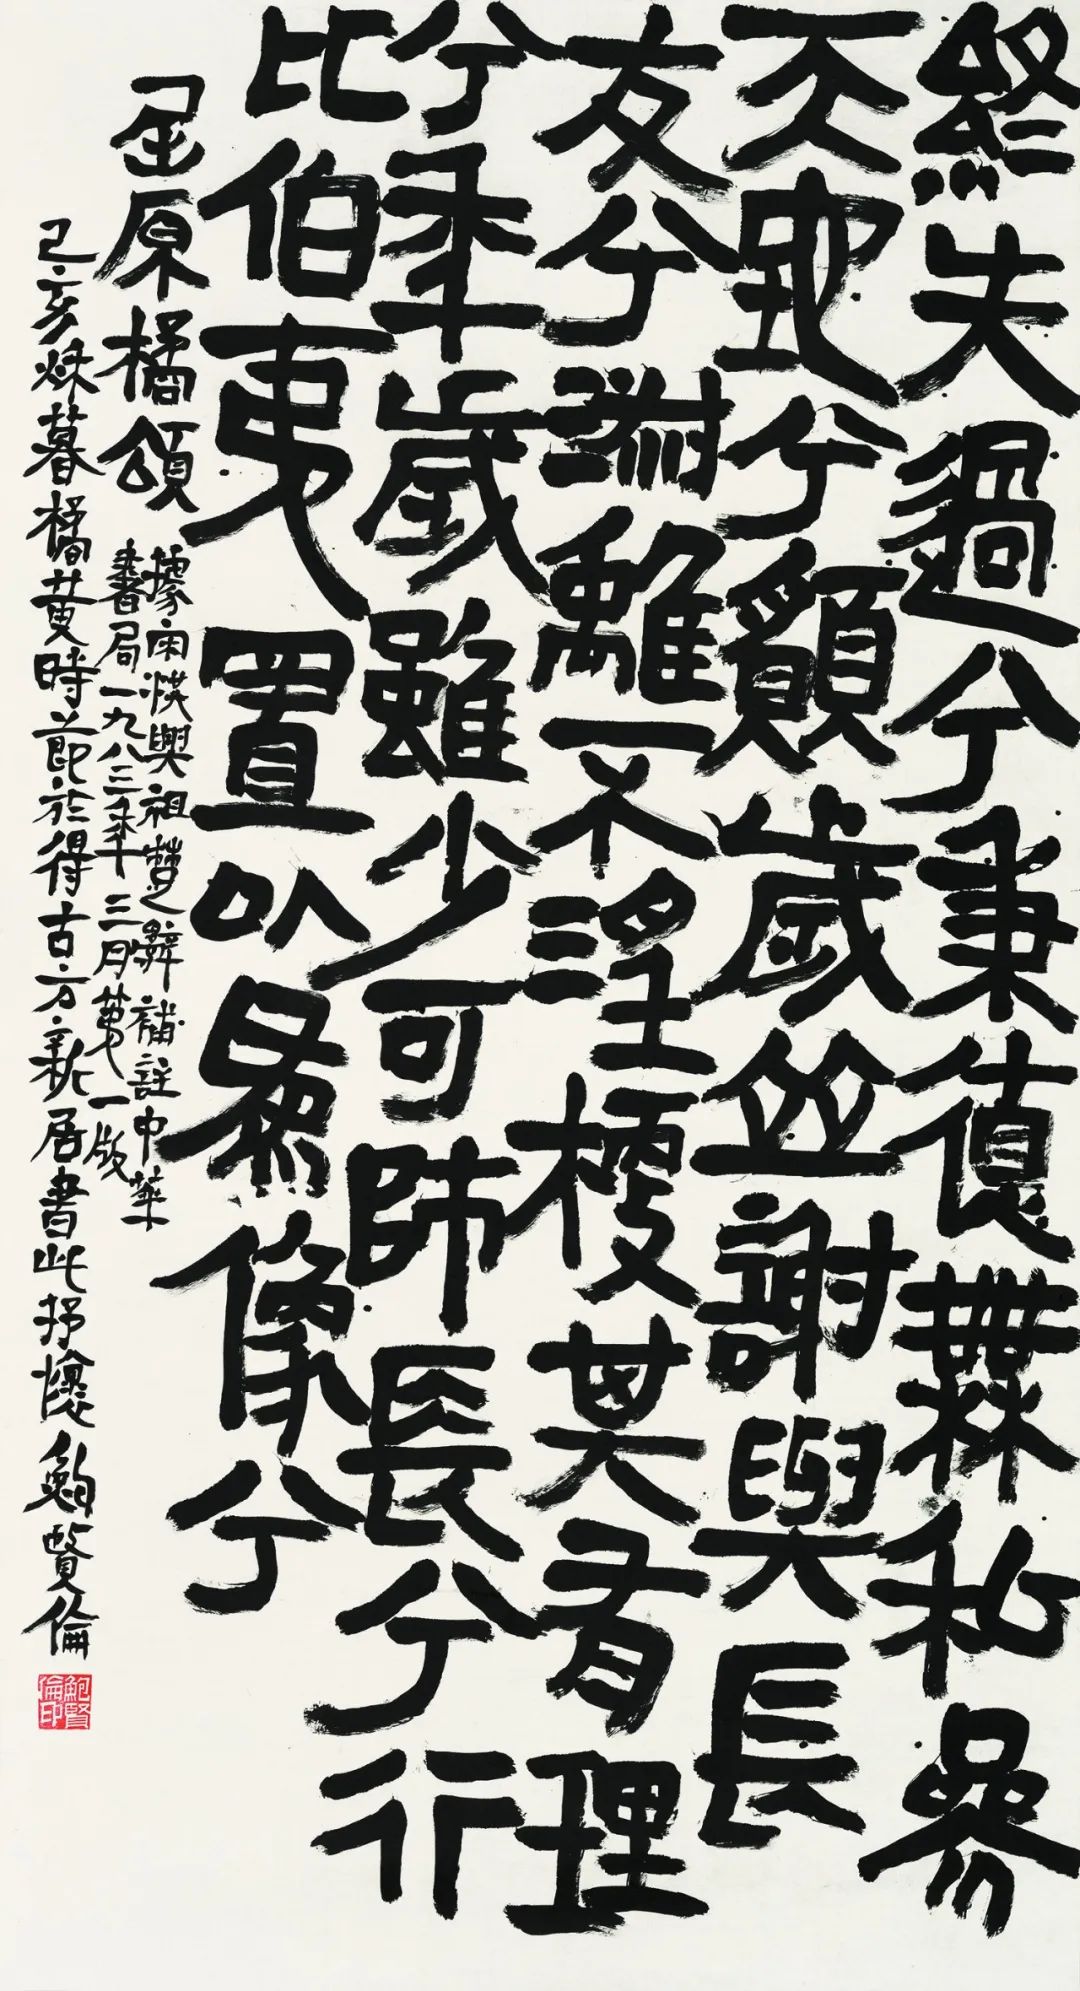 終失過兮秉德無私參
天地兮願歲並謝與長
友兮淑離不淫梗其有理
兮年歲雖少可師長兮行
比伯夷置以爲像兮
屈原橘頌
據宋洪興祖楚辭補註中華
書局一九八三年三月第一版
己亥秌暮橘黃時節於得古方新居書此抒懷鮑賢倫
鮑賢倫印